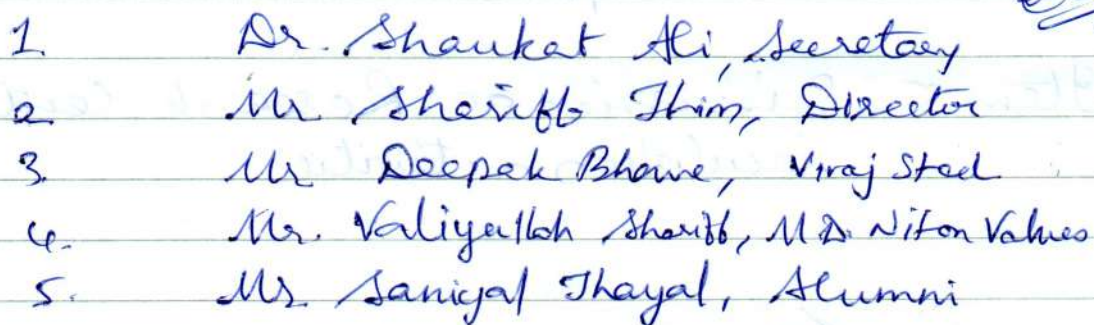 1. Dr. Shaukat Ali, Secretary
2. Mr Sheriff Thim, Director
3. Mr Deepak Bhowe, Viraj Steel
4. Mr. Valiyullah Shariff, M.D. Niton Valves
5. Mr Thayal, Alumni